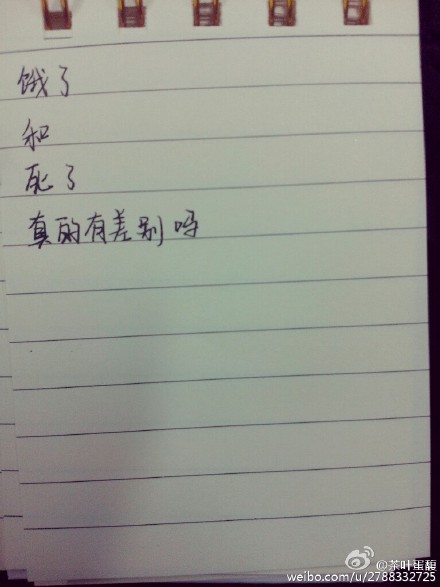 饿了
和
死了
真的有差别吗
@茶叶蛋馥
weibo.com/u/2788332725